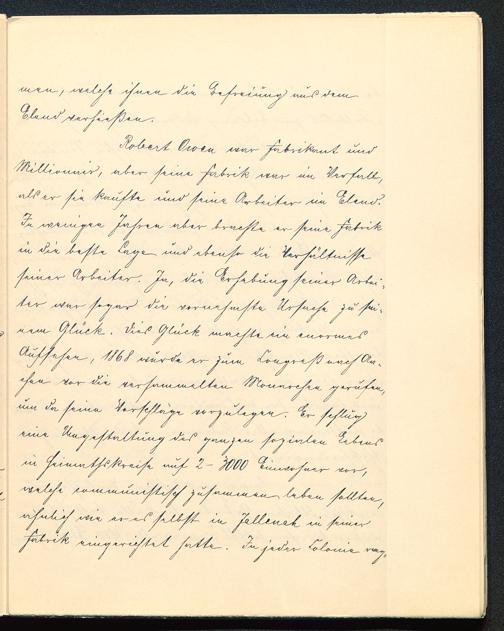 men, welche ihnen die Befreiung aus dem
Elend verhießen.
Robert Owen war Fabrikant und
Millionär, aber seine Fabrik war im Verfall,
als er sie kaufte und seine Arbeiter im Elend.
In wenigen Jahren aber brachte er seine Fabrik
in die beste Lage und ebenso die Verhältnisse
seiner Arbeiter. Ja, die Erhebung seiner Arbei-
ter war sogar die vornehmste Ursache zu sei-
nem Glück. Dies Glück machte ein enormes
Aufsehen, 1868 wurde er zum Congreß nach Aa-
chen vor die versammelten Monarchen gerufen,
um da seine Vorschläge vorzulegen. Er schlug
eine Umgestaltung des ganzen sozialen Lebens
in Heimathskreise auf 2-3000 Einwohner vor,
welche communistisch zusammen leben sollten,
ähnlich wie er es selbst in Jellenek in seiner
Fabrik eingerichtet hatte. In jeder Colonie